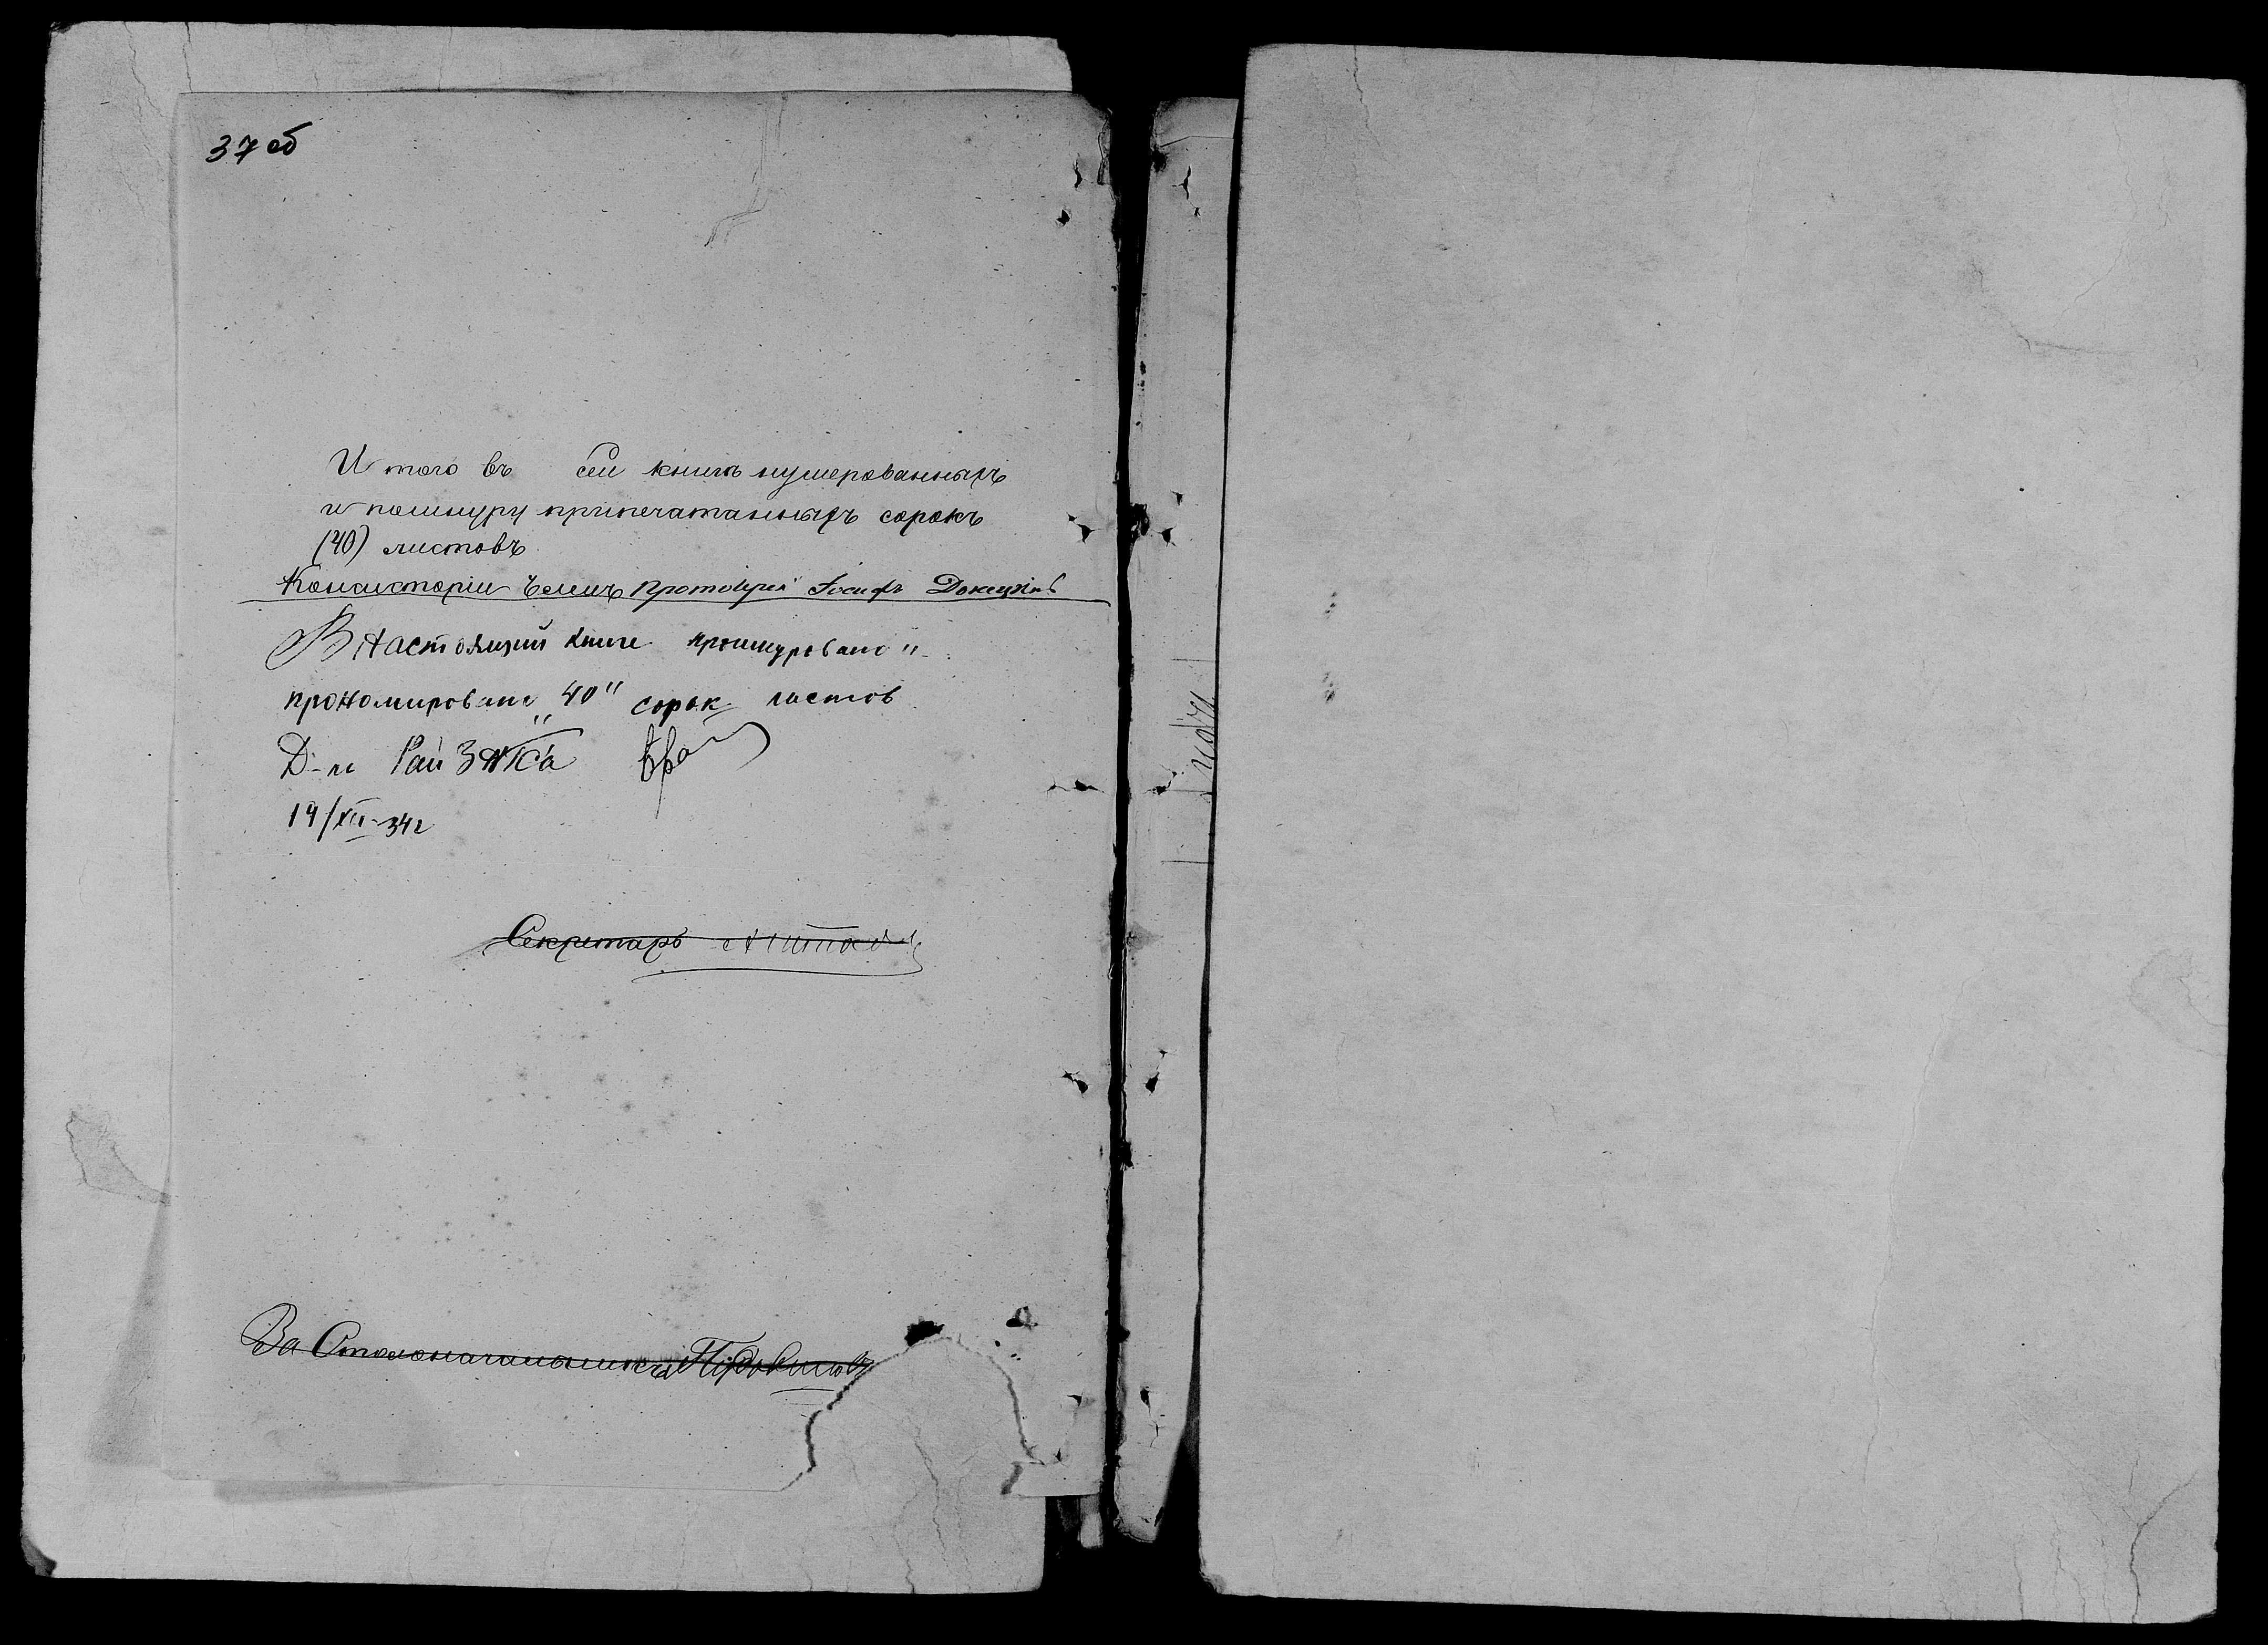 37 об
Итого въ сей книгѣ нумерованныхъ
и по шнуру припечатанныхъ сорокъ
(40) листовъ
Консисторіи Членъ Протоіерей Іосифъ
В настоящий книге прошнуровано и
прономировано „40" сорок листов
Рай ЗАГСа
19/XII-34г
Секретарь
За Столоначальника